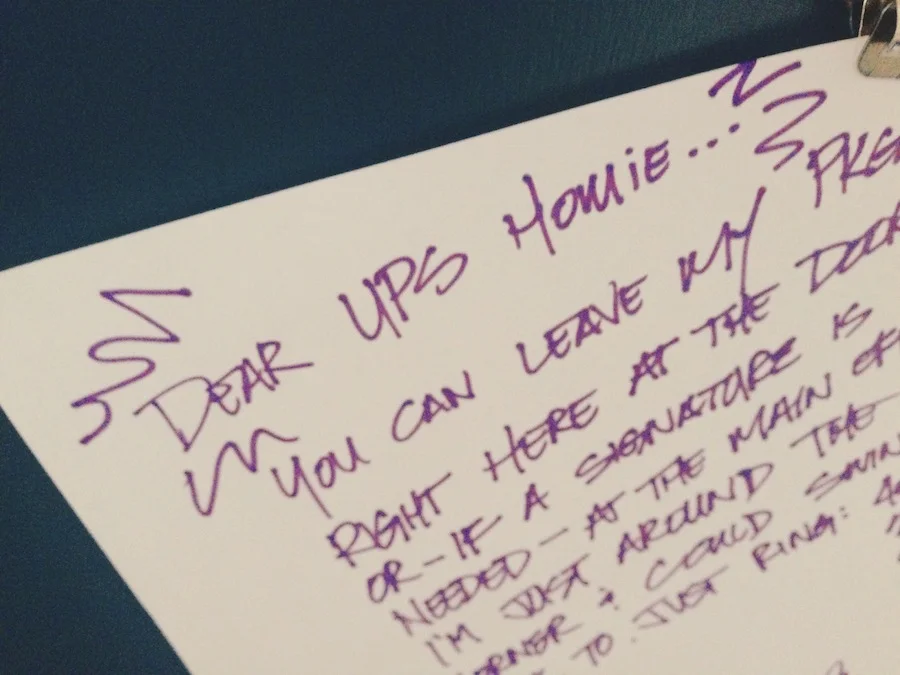 DEAR UPS HOMIE...
YOU CAN LEAVE MY PKG
RIGHT HERE AT THE DOOR
OR - IF A SIGNATURE IS
NEEDED - AT THE MAIN
I'M JUST AROUND THE
& COULD
TO JUST RING: